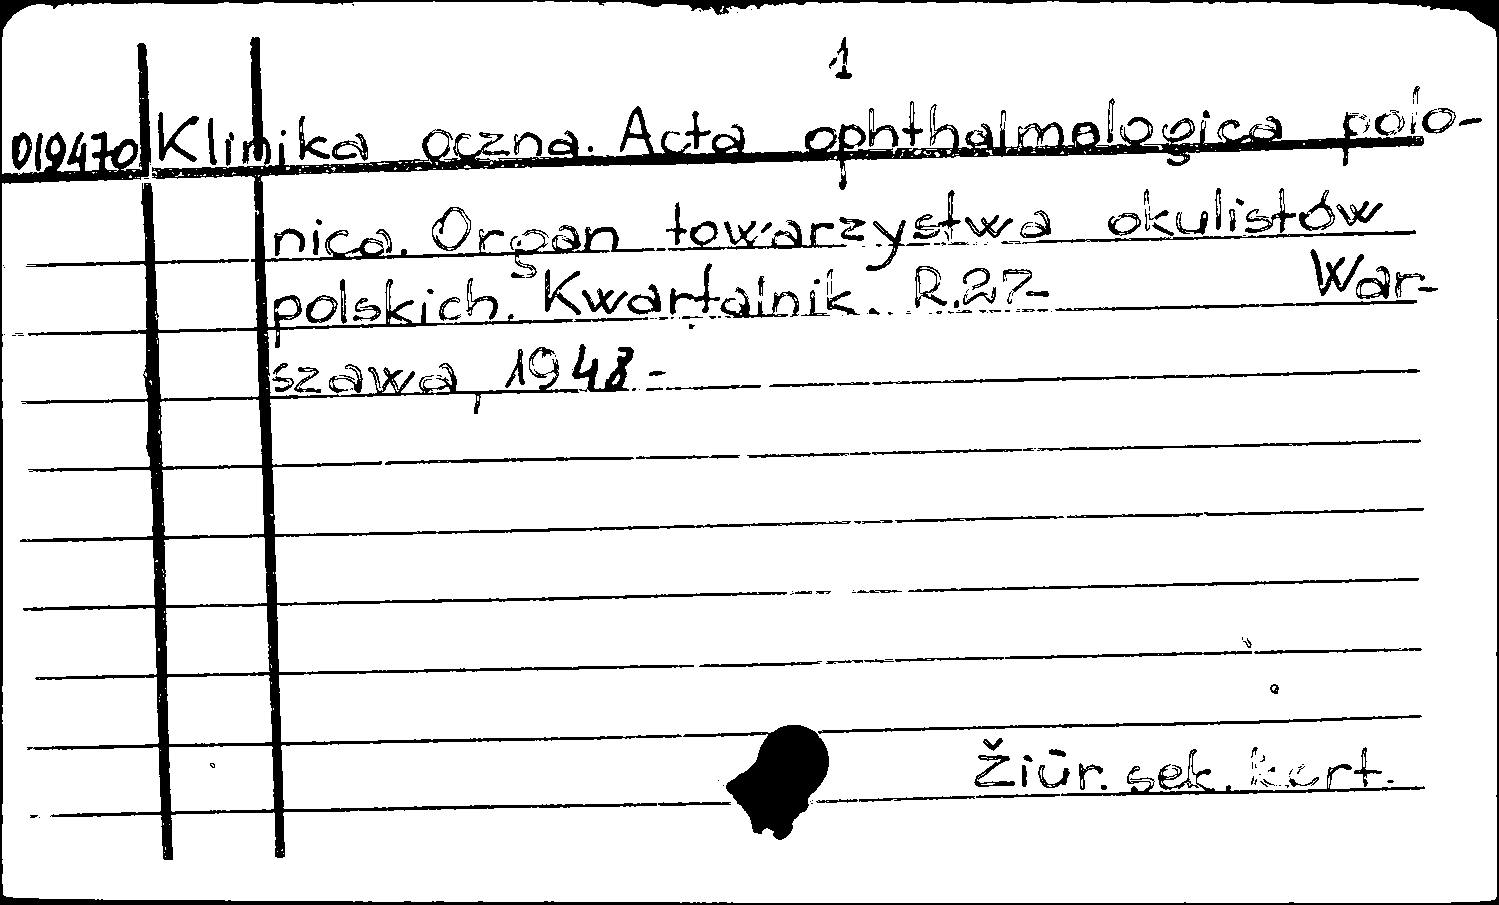 1
019470 Klinika oczna. Acta ophthalmologica polo-
nica. Organ towarzystwa okulistów
polskich. Kwartalnik. R.27- War-
szawa, 1948-
Žiūr. sek. kort.